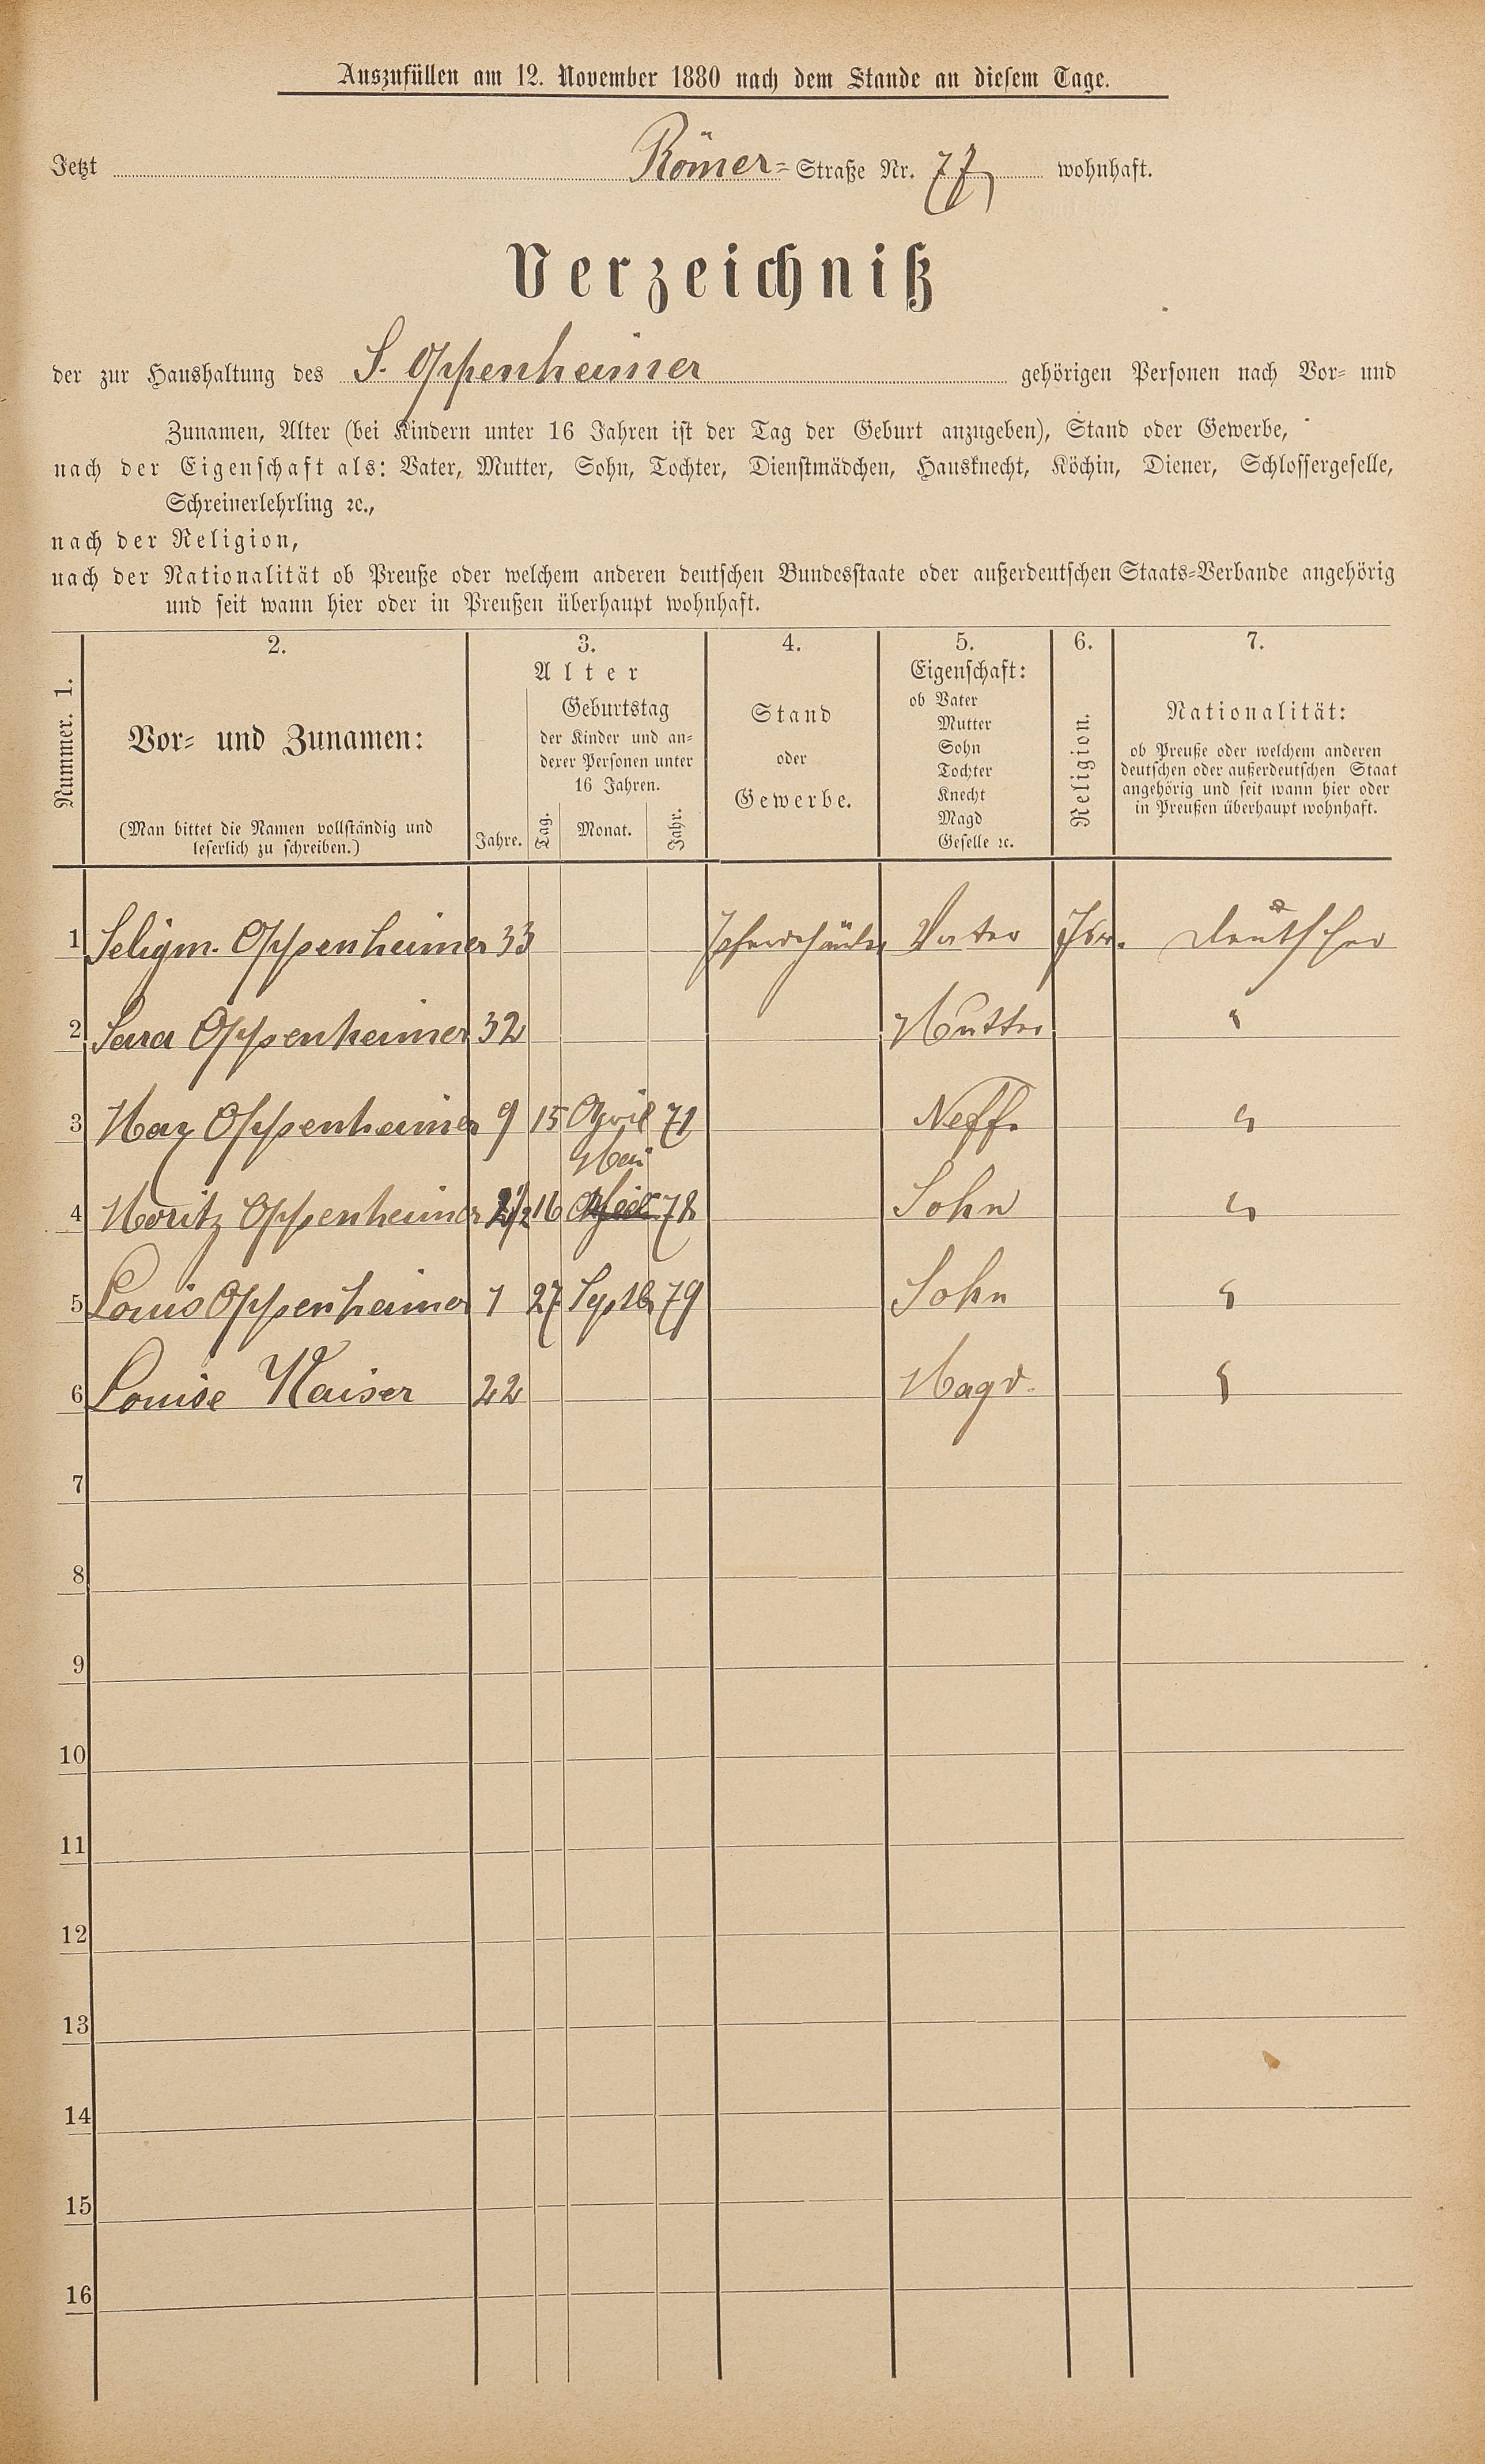 Auszufüllen am 12. November 1880 nach dem Stande an diesem Tage.
Jetzt Römer= Straße Nr. 77 wohnhaft.
Verzeichniß
der zur Haushaltung des S. Oppenheimer gehörigen Personen nach Vor- und
Zunamen, Alter (bei Kindern unter 16 Jahren ist der Tag der Geburt anzugeben), Stand oder Gewerbe,
nach der Eigenschaft als: Vater, Mutter, Sohn, Tochter, Dienstmädchen, Hausknecht, Köchin, Diener, Schlossergeselle,
Schreinerlehrling ꝛc.,
nach der Religion,
nach der Nationalität ob Preuße oder welchem anderen deutschen Bundesstaate oder außerdeutschen Staats-Verbande angehörig
und seit wann hier oder in Preußen überhaupt wohnhaft.
Nummer. 1.
2.
Vor- und Zunamen:
(Man bittet die Namen vollständig und
leserlich zu schreiben.)
3.
Alter
Jahre.
Geburtstag
der Kinder und an-
derer Personen unter
16 Jahren.
Tag. Monat. Jahr.
4.
Stand
oder
Gewerbe.
5.
Eigenschaft:
ob Vater
Mutter
Sohn
Tochter
Knecht
Magd
Geselle ꝛc.
6.
Religion.
7.
Nationalität:
ob Preuße oder welchem anderen
deutschen oder außerdeutschen Staat
angehörig und seit wann hier oder
in Preußen überhaupt wohnhaft.
1 Seligm. Oppenheimer 33 Pferdehändler Vater Isr. Deutscher
2 Sara Oppenheimer 32 Mutter "
3 Max Oppenheimer 9 15 April 71 Neffe "
Mai
4 Moritz Oppenheimer 2½ 16 April 78 Sohn "
5 Louis Oppenheimer 1 27 Septb 79 Sohn "
6 Louise Kaiser 22 Magd. "
7
8
9
10
11
12
13
14
15
16